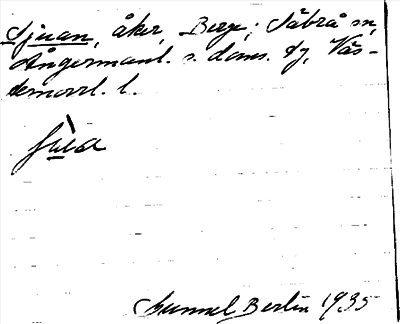 Sjuan, åker, Berge; Säbrå sn,
Ångermanl. s. doms. tg, Väs-
ternorrl. l.
Gunnel Bertin 1935